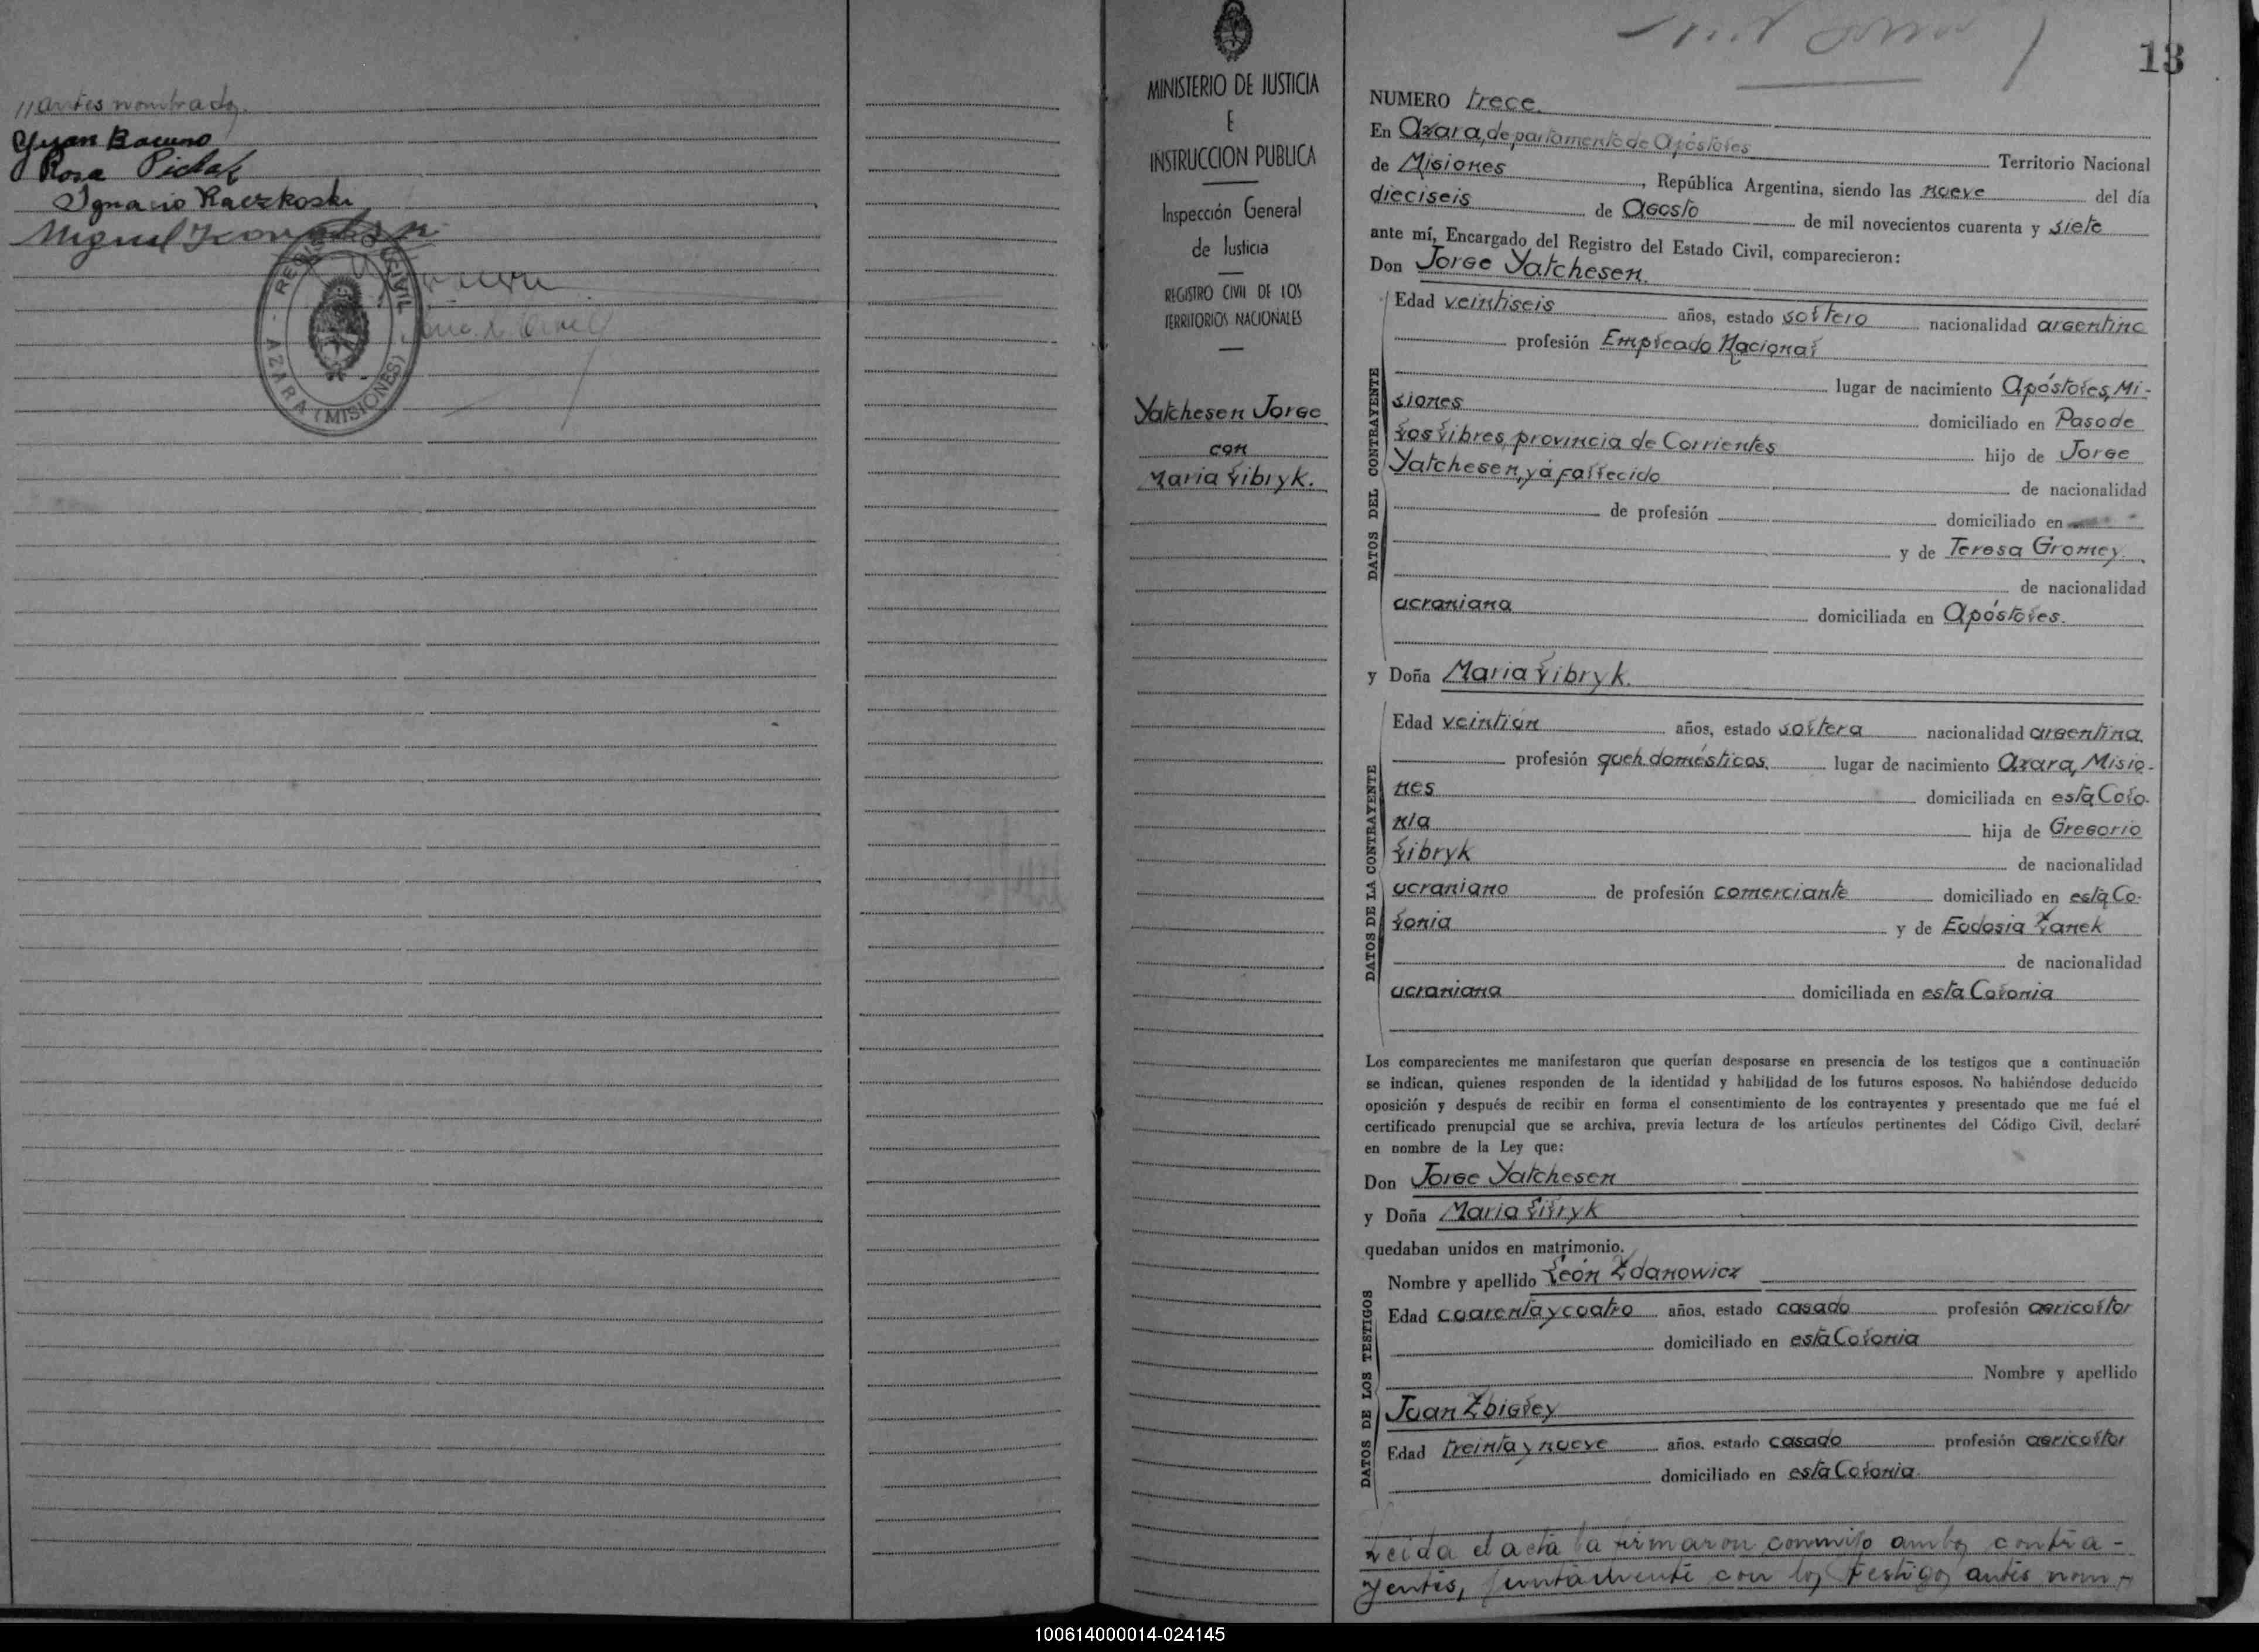 //antes nombrados.
Juan Bacuno
Rosa Pichak
Ignacio Raczkoski
Miguel
REGISTRO CIVIL - AZARA (MISIONES)
MINISTERIO DE JUSTICIA
E
INSTRUCCION PUBLICA
Inspección General
de Justicia
REGISTRO CIVIL DE LOS
TERRITORIOS NACIONALES
Yatchesen Jorge
con
Maria Libryk.
13
NUMERO trece.
En Azara, departamento de Apóstoles Territorio Nacional
de Misiones, República Argentina, siendo las nueve del día
dieciseis de Agosto de mil novecientos cuarenta y siete
ante mí, Encargado del Registro del Estado Civil, comparecieron:
Don Jorge Yatchesen.
DATOS DEL CONTRAYENTE
Edad veintiseis años, estado soltero nacionalidad argentino
profesión Empleado Nacional
lugar de nacimiento Apóstoles, Mi-
siones domiciliado en Paso de
los Libres, provincia de Corrientes hijo de Jorge
Yatchesen, yá fallecido de nacionalidad
de profesión domiciliado en
y de Teresa Gromey.
de nacionalidad
ucraniana domiciliada en Apóstoles.
y Doña Maria Libryk.
DATOS DE LA CONTRAYENTE
Edad veintiún años, estado soltera nacionalidad argentina.
profesión queh. domésticos. lugar de nacimiento Azara, Misio-
nes domiciliada en esta Colo-
nia hija de Gregorio
Libryk de nacionalidad
ucraniano de profesión comerciante domiciliado en esta Co-
lonia y de Eudosia Zanek
de nacionalidad
ucraniana domiciliada en esta Colonia
Los comparecientes me manifestaron que querían desposarse en presencia de los testigos que a continuación
se indican, quienes responden de la identidad y habilidad de los futuros esposos. No habiéndose deducido
oposición y después de recibir en forma el consentimiento de los contrayentes y presentado que me fué el
certificado prenupcial que se archiva, previa lectura de los artículos pertinentes del Código Civil, declaré
en nombre de la Ley que:
Don Jorge Yatchesen
y Doña Maria Libryk
quedaban unidos en matrimonio.
DATOS DE LOS TESTIGOS
Nombre y apellido León Zdanowicz
Edad cuarenta y cuatro años, estado casado profesión agricultor
domiciliado en esta Colonia
Nombre y apellido
Juan Zbigley
Edad treinta y nueve años, estado casado profesión agricultor
domiciliado en esta Colonia.
Leida el acta la firmaron conmigo ambos contra-
yentes, juntamente con los testigos antes nom-
100614000014-024145